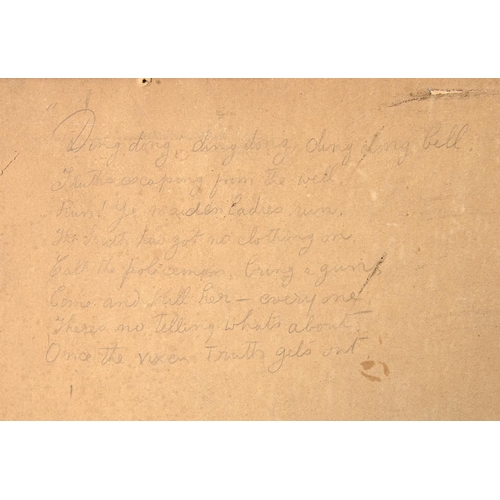 "Ding dong, ding dong, ding dong bell.
Truth's escaping from the well.
Run! Ye maiden ladies, run,
The truth has got no clothing on,
Call the policeman, bring a gun,
Come and kill her – everyone,
There's no telling what's about.
Once the vixen Truth gets out